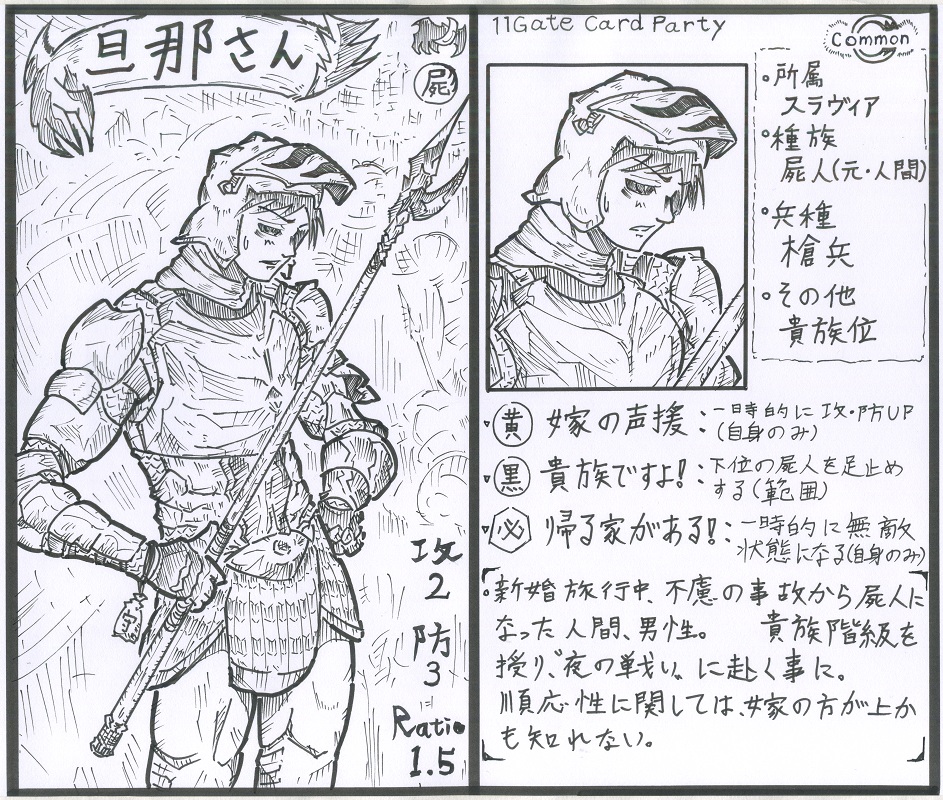 旦那さん
屍
攻
2
防
3
Ratio
1.5
11Gate Card Party
Common
・所属
スラヴィア
・種族
屍人(元・人間)
・兵種
槍兵
・その他
貴族位
・黄 嫁の声援:一時的に攻・防UP
(自身のみ)
・黒 貴族ですよ!:下位の屍人を足止め
する(範囲)
・必 帰る家がある!:一時的に無敵
状態になる(自身のみ)
・新婚旅行中、不慮の事故から屍人に
なった人間、男性。 貴族階級を
授り、"夜の戦い"に赴く事に。
順応性に関しては、嫁の方が上か
も知れない。